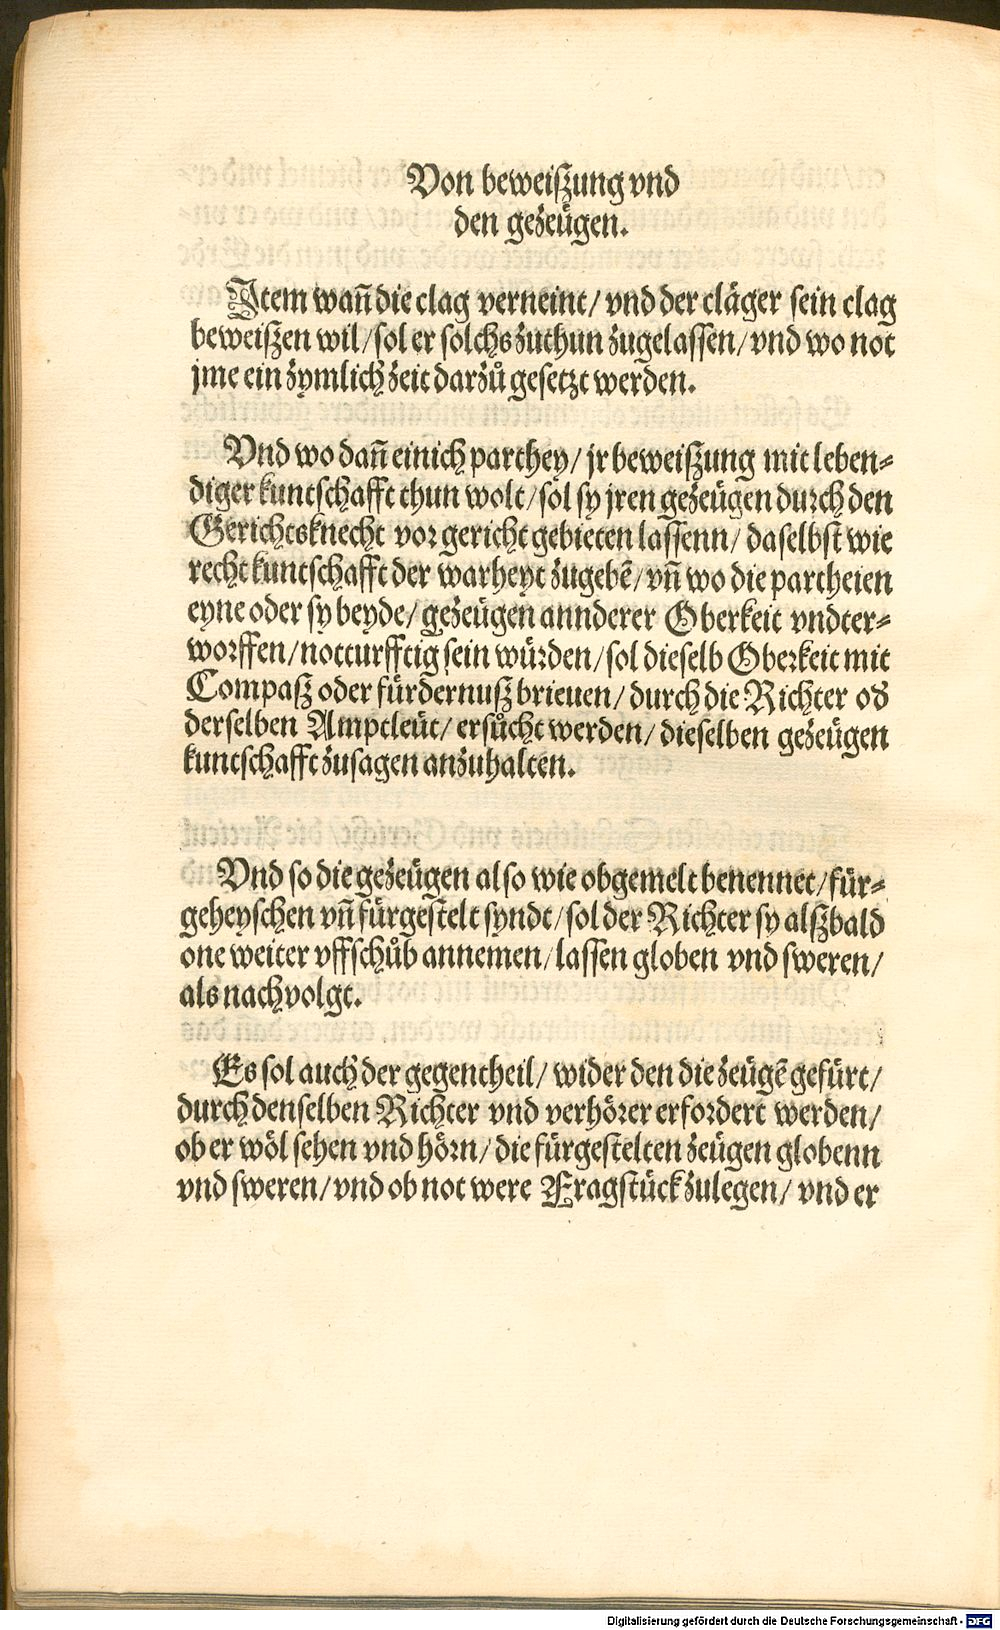 Von beweiſzung vnd
den gezeügen.
Item wañ die clag verneint/ vnd der cläger ſein clag
beweiſzen wil/ ſol er ſolchs zuthun zugelaſſen/ vnd wo not
jme ein zymlich zeit darzů geſetzt werden.
Vnd wo dañ einich parthey/ jr beweiſzung mit leben⸗
diger kuntſchafft thun wolt/ ſol ſy jren gezeügen durch den
Gerichtsknecht vor gericht gebieten laſſenn/ daſelbſt wie
recht kuntſchafft der warheyt zugebẽ/ vñ wo die partheien
eyne oder ſy beyde/ gezeügen annderer Oberkeit vndter⸗
worffen/ notturfftig ſein würden/ ſol dieſelb Oberkeit mit
Compaſz oder fürdernuſz brieuen/ durch die Richter oď
derſelben Amptleüt/ erſůcht werden/ dieſelben gezeügen
kuntſchafft zuſagen anzuhalten.
Vnd ſo die gezeügen alſo wie obgemelt benennet/ für⸗
geheyſchen vñ fürgeſtelt ſyndt/ ſol der Richter ſy alſzbald
one weiter vffſchůb annemen/ laſſen globen vnd ſweren/
als nachvolgt.
Es ſol auch der gegentheil/ wider den die zeügẽ gefürt/
durch denſelben Richter vnd verhörer erfordert werden/
ob er wöl ſehen vnd hörn/ die fürgeſtelten zeügen globenn
vnd ſweren/ vnd ob not were Fragſtück zulegen/ vnd er
Digitalisierung gefördert durch die Deutsche Forschungsgemeinschaft - DFG